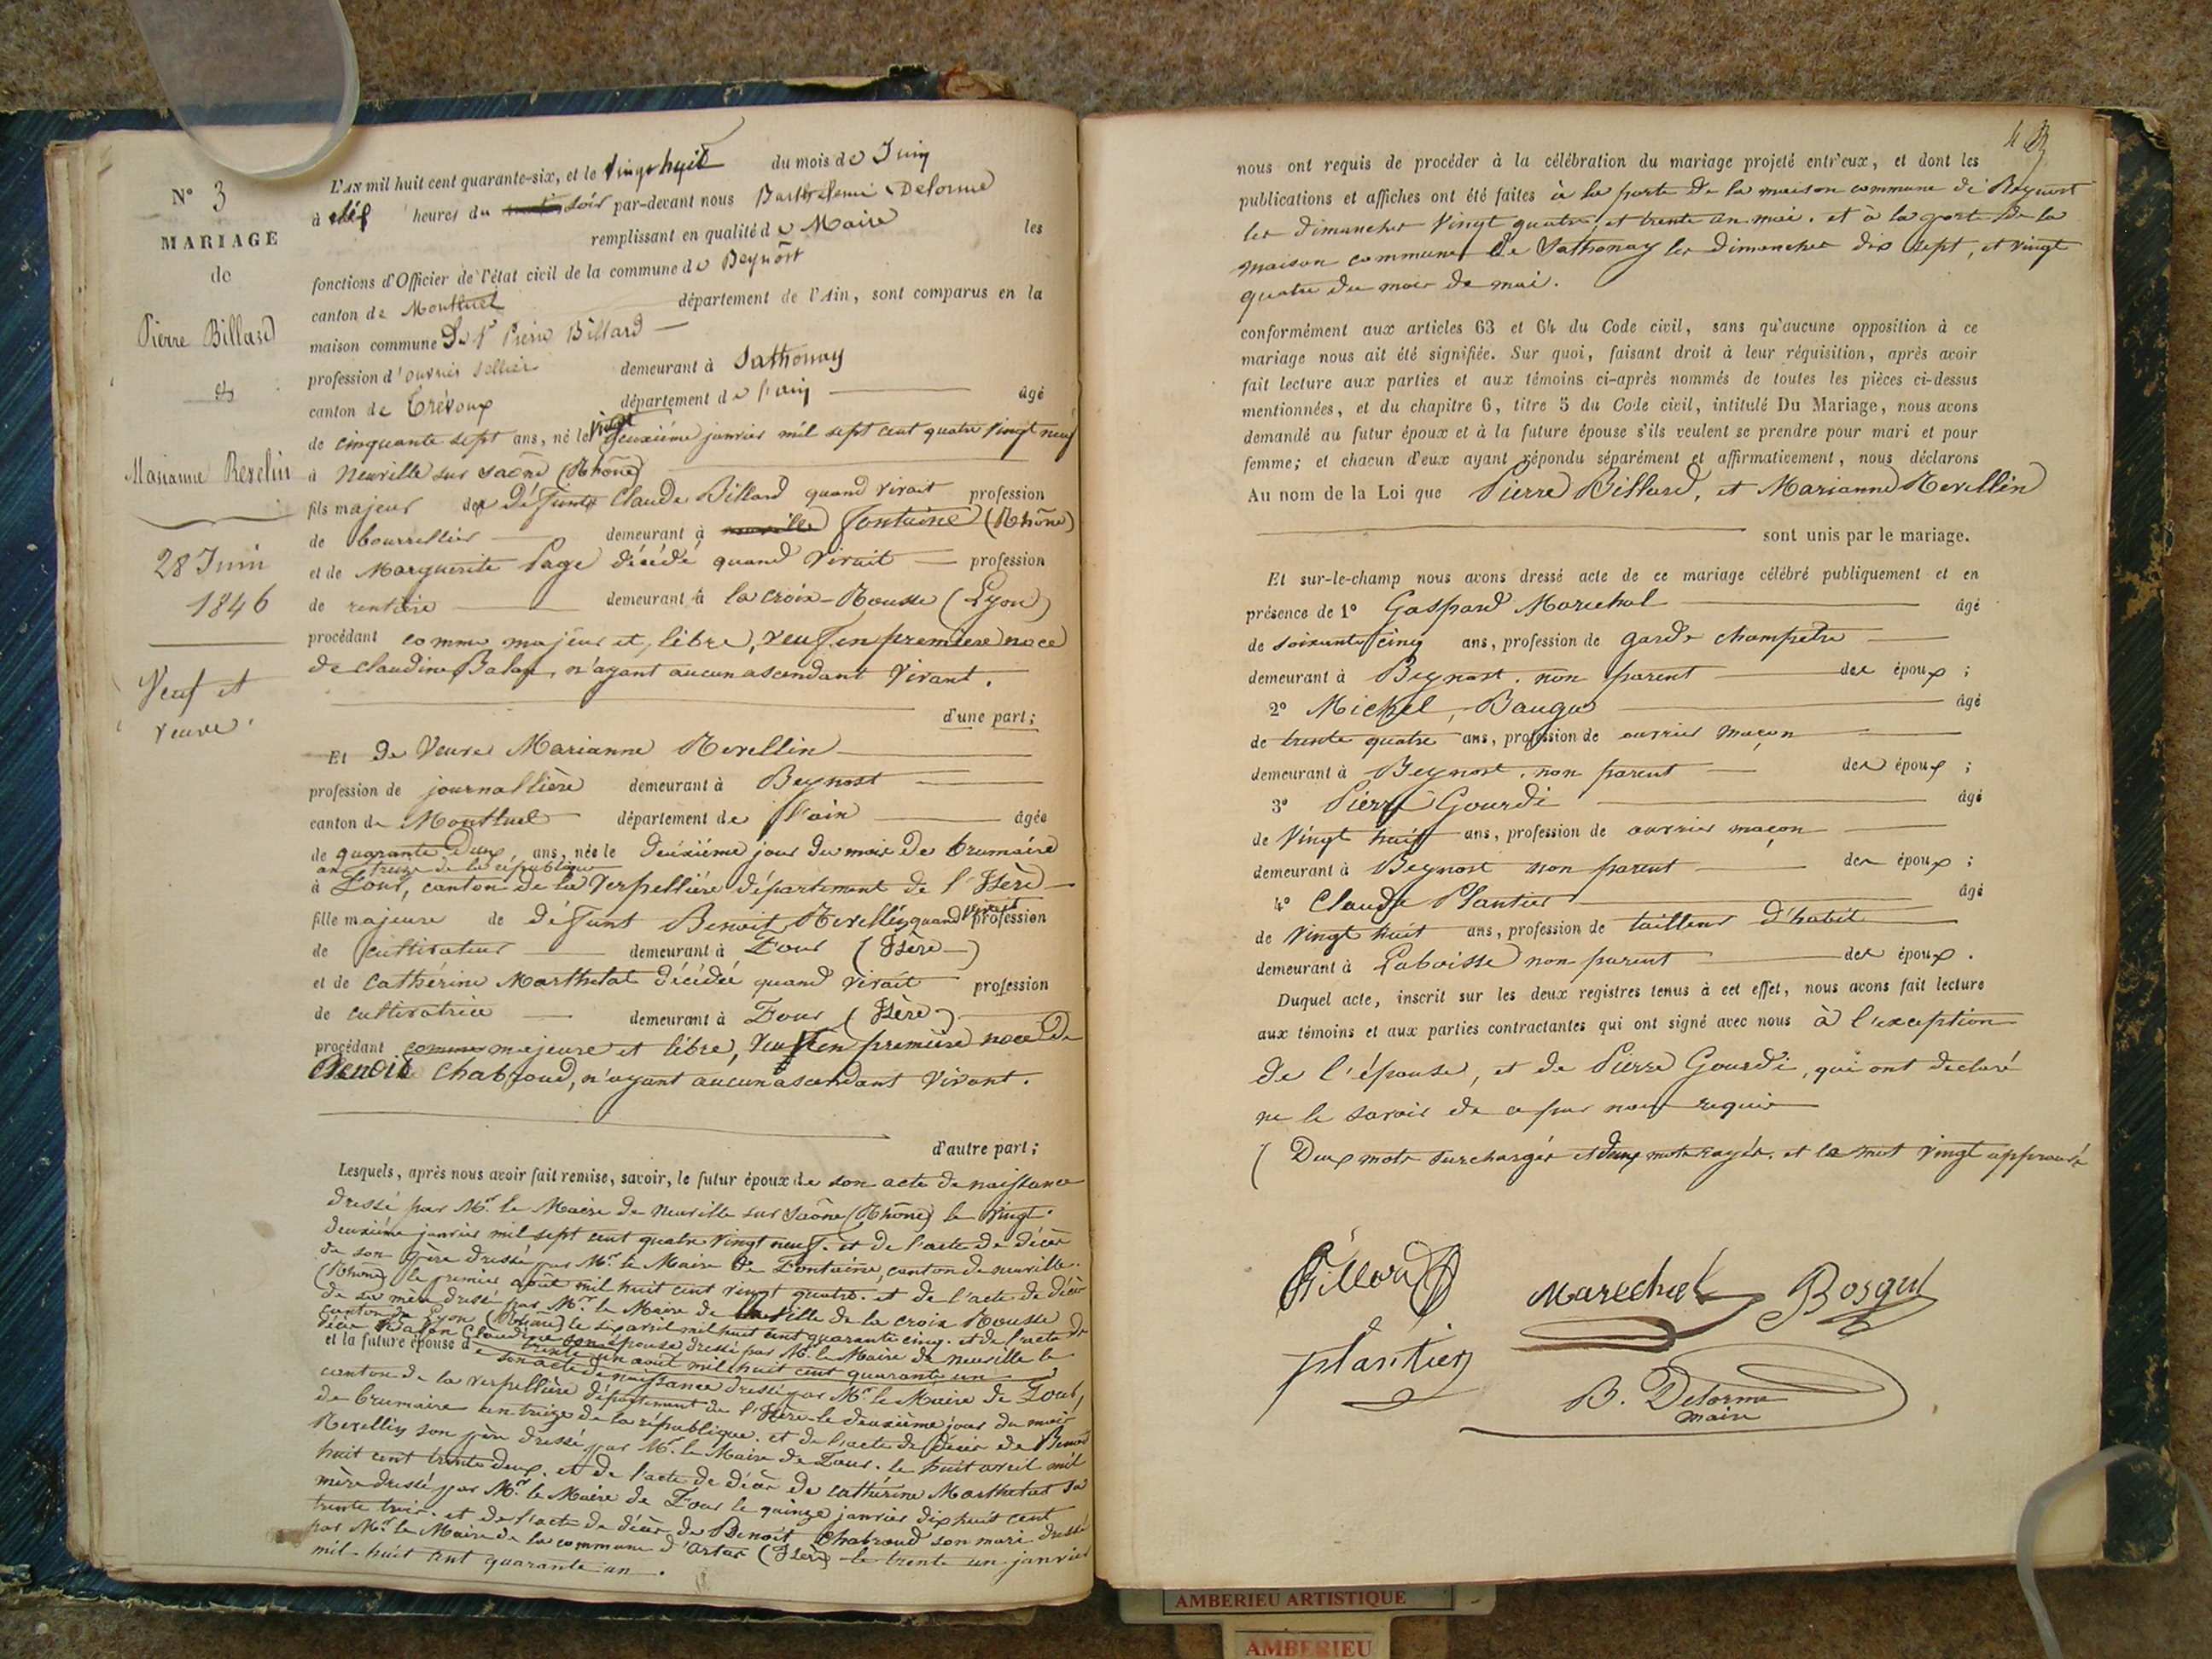 N° 3
MARIAGE
de
Pierre Billard
et
Marianne Revelin
28 Juin
1846
Veuf et
veuve
L'AN mil huit cent quarante-six, et le vingt huit du mois de Juin
à heures du soir par-devant nous Barthelemi Delorme
remplissant en qualité de Maire les
fonctions d'Officier de l'état civil de la commune de Beynost
canton de Montluel département de l'Ain, sont comparus en la
maison commune Sr Pierre Billard
profession d'ouvrier sellier demeurant à Sathonay
canton de Trévoux département de l'ain âgé
de cinquante sept ans, né le vingt deuxième janvier mil sept cent quatre vingt neuf
à Neuville sur Saône (Rhône)
fils majeur de défunt Claude Billard quand vivait profession
de bourrellier demeurant à neuville fontaine (Rhône)
et de Marguerite Page décédé quand vivait profession
de rentière demeurant à la croix-Rousse (Lyon)
procédant comme majeur et libre, veuf en première noce
de claudine Balan, n'ayant aucun ascendant vivant.
d'une part;
Et de Veuve Marianne Revellin
profession de journallière demeurant à Beynost
canton de Montluel département de l'ain âgée
de quarante deux ans, née le deuxième jour du mois de brumaire
an treize de la république
à Four, canton de la Verpellière département de l'Isère
fille majeure de défunt Benoit Revellin quand vivait profession
de cultivateur demeurant à Four (Isère)
et de Cathérine Marthelat décédée quand vivait profession
de cultivatrice demeurant à Four (Isère)
procédant comme majeure et libre, veuf en première noce de
Benoit Chabroud, n'ayant aucun ascendant vivant.
d'autre part;
Lesquels, après nous avoir fait remise, savoir, le futur époux de son acte de naissance
dressé par Mr. le Maire de Neuville sur Saône (Rhône) le vingt
deuxième janvier mil sept cent quatre vingt neuf. et de l'acte de décès
de son père dressé par Mr. le Maire de Fontaine, canton de neuville
(Rhône) le premier août mil huit cent vingt quatre. et de l'acte de décès
de sa mère dressé par Mr. le Maire de la ville de la croix Rousse
canton de Lyon (Rhône) le six avril mil huit cent quarante cinq. et de l'acte de
décès Balan Claudine son épouse, dressé par Mr. le Maire de neuville le
trente un août mil huit cent quarante un
et la future épouse de son acte de naissance dressé par Mr. le Maire de Four,
canton de la Verpellière département de l'Isère le deuxième jour du mois
de brumaire an treize de la république. et de l'acte de décès de Benoit
Revellin son père dressé par Mr. le Maire de Four. le huit avril mil
huit cent trente deux. et de l'acte de décès de cathérine Marthelat sa
mère dressé par Mr. le Maire de Four le quinze janvier dix huit cent
trente trois. et de l'acte de décès de Benoit Chabroud son mari dressé
par Mr. le Maire de la commune d'artas (Isère) le trente un janvier
mil huit cent quarante un.
nous ont requis de procéder à la célébration du mariage projeté entr'eux, et dont les
publications et affiches ont été faites à la porte de la maison commune de Beynost
les dimanches vingt quatre, et trente un mai. et à la porte de la
maison commune de Sathonay les dimanches dix sept, et vingt
quatre du mois de mai.
conformément aux articles 63 et 64 du Code civil, sans qu'aucune opposition à ce
mariage nous ait été signifiée. Sur quoi, faisant droit à leur réquisition, après avoir
fait lecture aux parties et aux témoins ci-après nommés de toutes les pièces ci-dessus
mentionnées, et du chapitre 6, titre 5 du Code civil, intitulé Du Mariage, nous avons
demandé au futur époux et à la future épouse s'ils veulent se prendre pour mari et pour
femme; et chacun d'eux ayant répondu séparément et affirmativement, nous déclarons
Au nom de la Loi que Pierre Billard, et Marianne Revellin
sont unis par le mariage.
Et sur-le-champ nous avons dressé acte de ce mariage célébré publiquement et en
présence de 1° Gaspard Marechal âgé
de soixante cinq ans, profession de garde champetre
demeurant à Beynost. non parent des époux;
2° Michel, âgé
de trente quatre ans, profession de ouvrier maçon
demeurant à Beynost. non parent des époux;
3° Pierre Gourdi âgé
de vingt huit ans, profession de ouvrier maçon
demeurant à Beynost non parent des époux;
4° Claude Plantier âgé
de vingt huit ans, profession de tailleur d'habit
demeurant à Laboisse non parent des époux.
Duquel acte, inscrit sur les deux registres tenus à cet effet, nous avons fait lecture
aux témoins et aux parties contractantes qui ont signé avec nous à l'exception
de l'épouse, et de Pierre Gourdi, qui ont declaré
ne le savoir de ce par nous requis
(Deux mots surchargés et deux mots rayés. et le mot vingt approuvé
Billard Marechal
plantier
B. Delorme
maire
AMBERIEU ARTISTIQUE
AMBERIEU